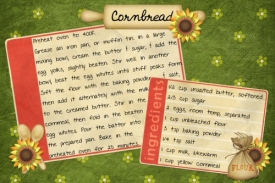 Cornbread
Preheat oven to 400F.
Grease an iron pan, or muffin tin. In a large
mixing bowl, cream the butter & sugar, & add the
egg yolks, slightly beaten. Stir well. In another
bowl, beat the egg whites until stiff peaks form.
Sift the flour with the baking powder & salt,
then add it alternately with the milk
to the creamed butter. Stir in the
cornmeal, then fold in the beaten
egg whites. Pour the batter into
the prepared pan. Bake in the
preheated oven for 25 minutes.
ingredients
1/2 cup unsalted butter, softened
2/3 cup sugar
2 eggs, room temp, separated
1 cup unbleached flour
3 tsp baking powder
1/4 tsp salt
1 cup milk, lukewarm
1 cup yellow cornmeal
FLOUR